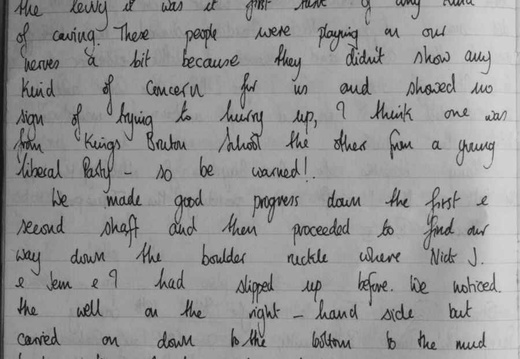 the
it was it first
of any kind
of caving. These people were playing on our
nerves a bit because they didn't show any
kind of concern for us and showed no
sign of trying to hurry up, I think one was
from Kings Bruton School the other from a young
liberal Party - so be warned!.
We made good progress down the first e
second shaft and then proceeded to find our
way down the boulder ruckle where Nick J.
e Jem e I had slipped up before. We noticed.
the well on the right - hand side but
carried on down to the bottom to the mud